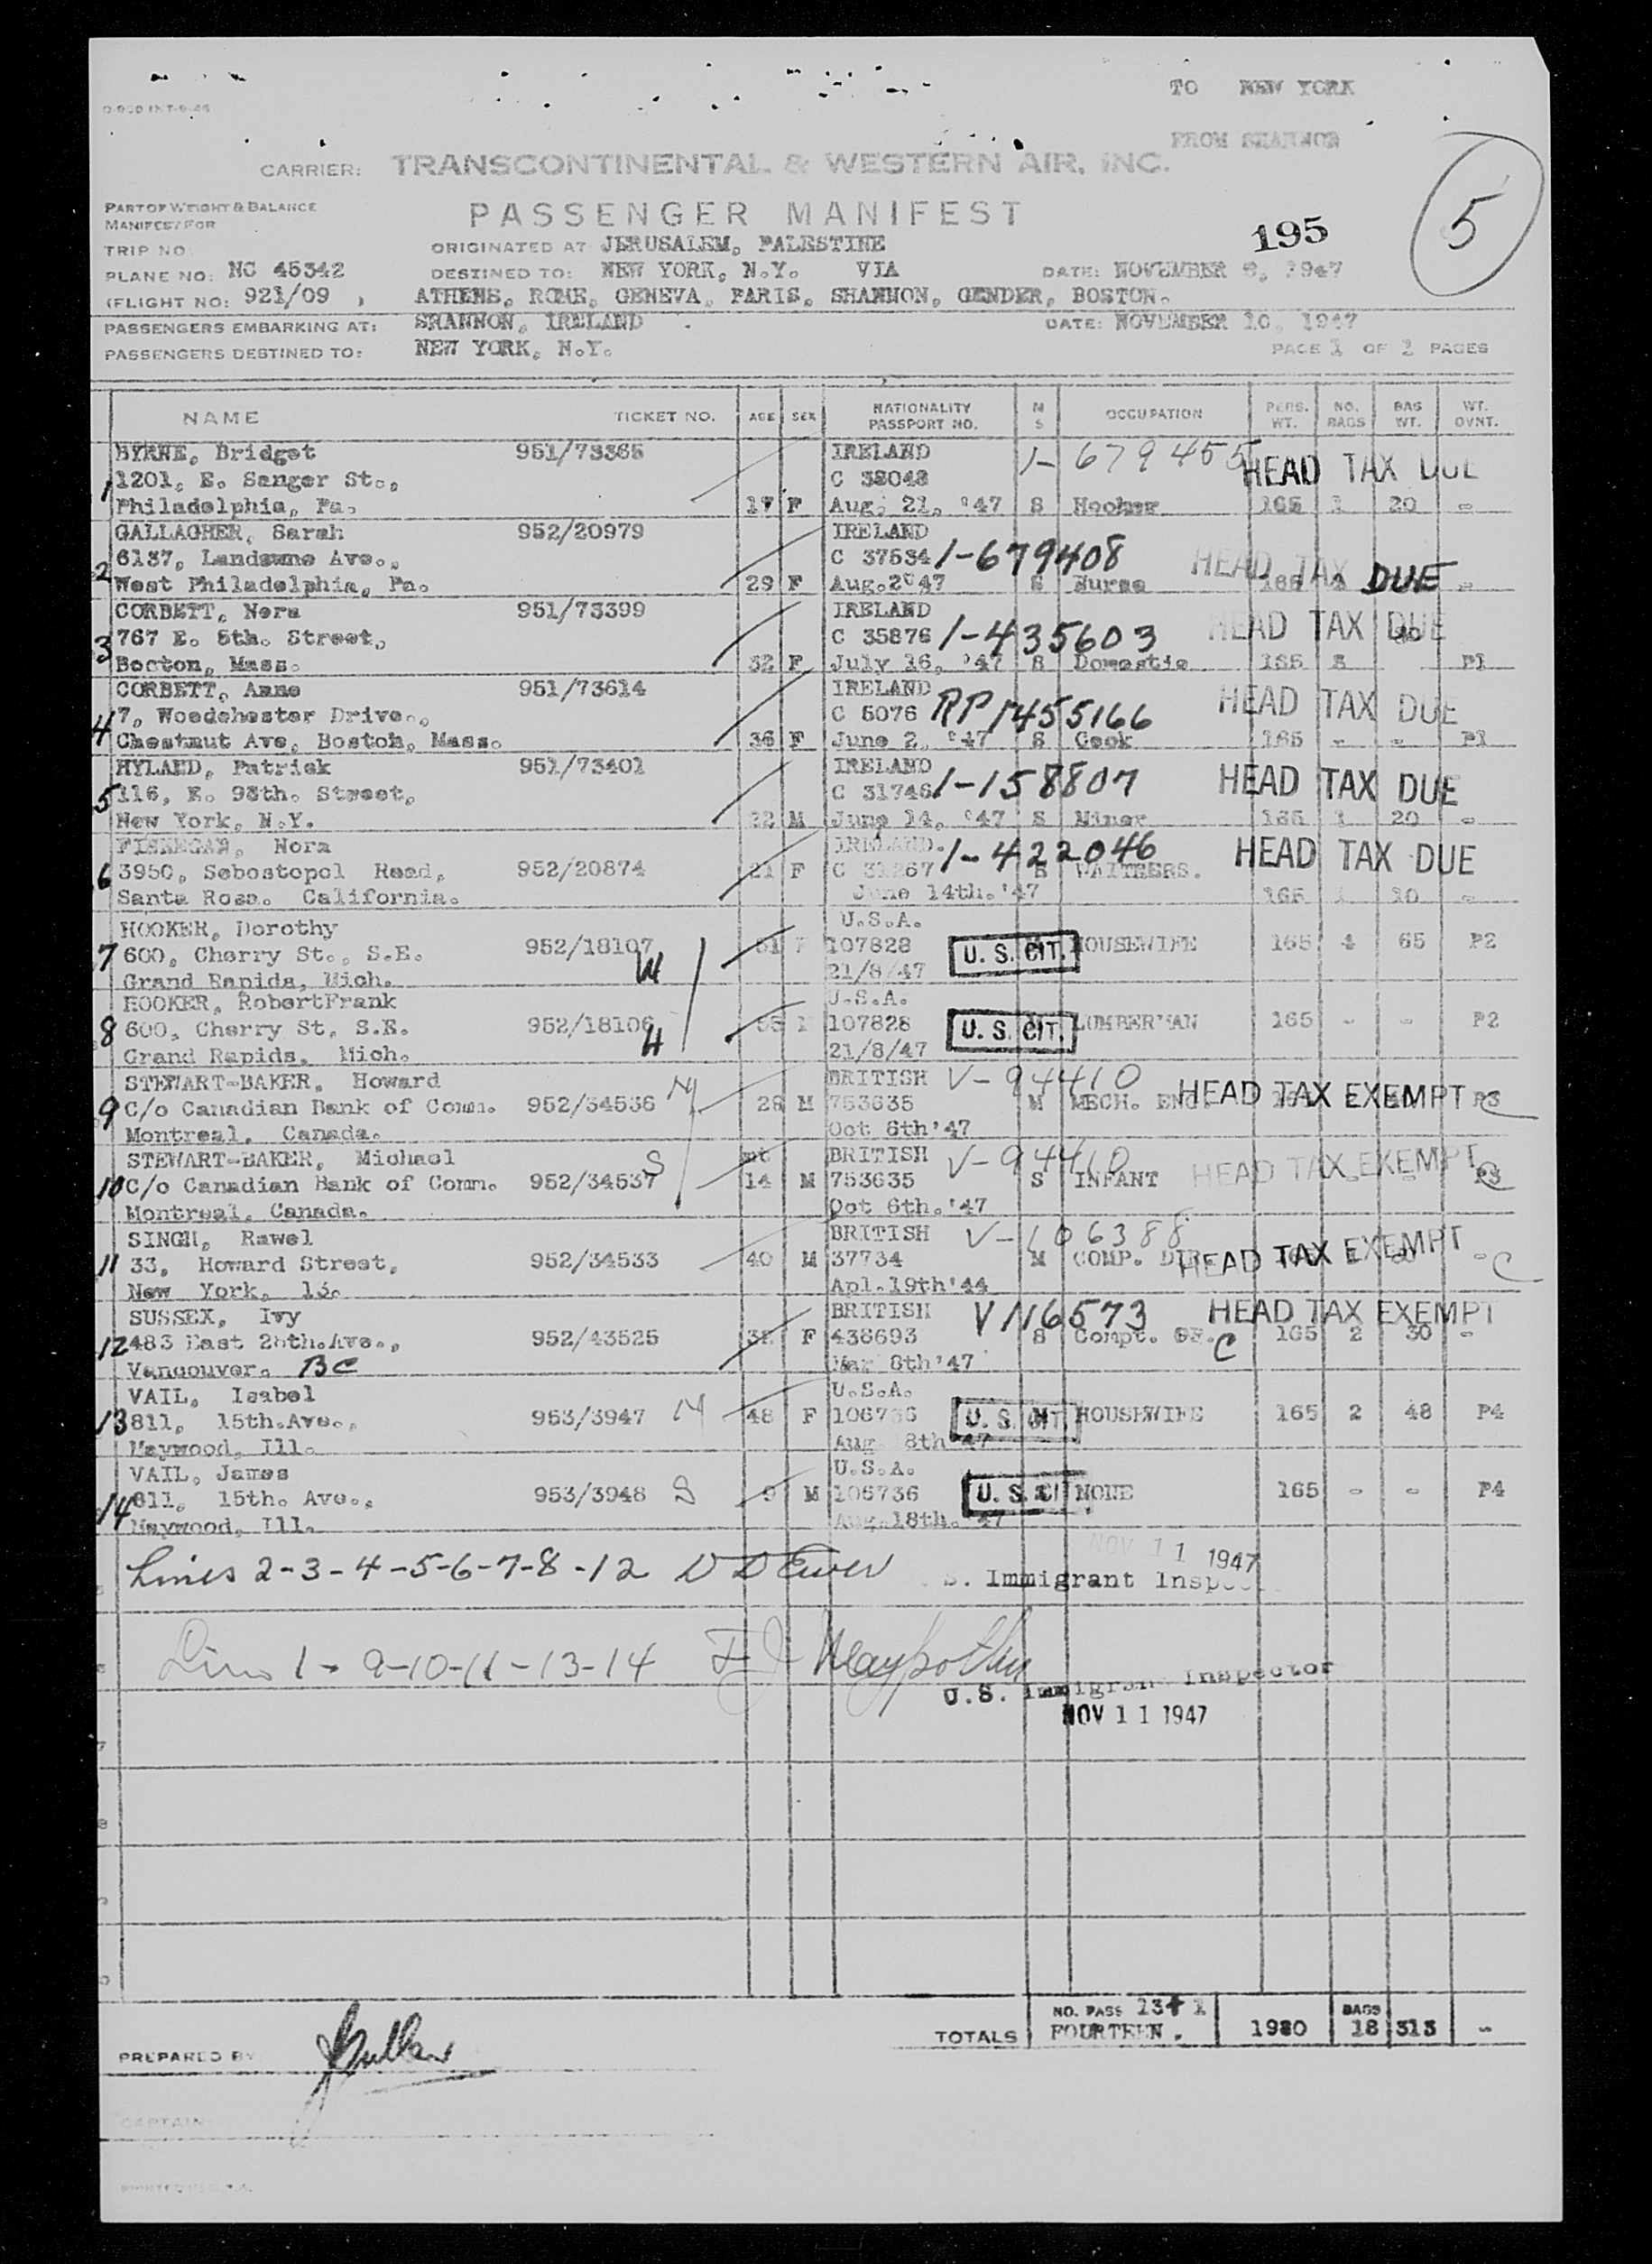 TO NEW YORK
FROM SHANNON
CARRIER: TRANSCONTINENTAL & WESTERN AIR, INC.
PART OF WEIGHT & BALANCE
MANIFEST FOR
PASSENGER MANIFEST
195
5
TRIP NO
ORIGINATED AT JERUSALEM, PALESTINE
PLANE NO: NC 45342
DESTINED TO: NEW YORK, N.Y. VIA
DATE: NOVEMBER 9, 1947
(FLIGHT NO: 921/09 )
ATHENS, ROME, GENEVA, PARIS, SHANNON, GENDER, BOSTON.
PASSENGERS EMBARKING AT: SHANNON, IRELAND
DATE: NOVEMBER 10, 1947
PASSENGERS DESTINED TO: NEW YORK, N.Y.
PAGE 1 OF 1 PAGES
NAME TICKET NO. AGE SEX NATIONALITY PASSPORT NO. M S OCCUPATION PERS. WT. NO. BAGS BAG WT. WT. OVNT.
BYRNE, Bridget 951/73365 IRELAND 1-679455 HEAD TAX DUE
1 1201, E. Sanger St., C 38048
Philadelphia, Pa. 17 F Aug. 21, '47 S 165 1 20 -
GALLAGHER, Sarah 952/20979 IRELAND
2 6137, Landswne Ave., C 37534 1-679408 HEAD TAX DUE
West Philadelphia, Pa. 29 F Aug.2'47 S Nurse 165 -
CORBETT, Nora 951/73399 IRELAND
3 767 E. 5th. Street, C 35876 1-435603 HEAD TAX DUE
Boston, Mass. 32 F July 16, '47 S Domestic 165 P1
CORBETT, Anne 951/73614 IRELAND
4 7, Woodchester Drive., C 5076 RP 1455166 HEAD TAX DUE
Chestnut Ave, Boston, Mass. 36 F June 2, '47 S Cook 165 - - P1
HYLAND, Patrick 951/73401 IRELAND
5 116, E. 98th. Street, C 31746 1-158807 HEAD TAX DUE
New York, N.Y. 22 M June 14, '47 S Miner 165 1 20 -
Nora IRELAND. 1-422046 HEAD TAX DUE
6 3950, Sebostopol Road, 952/20874 21 F C 31267 S WAITRERS.
Santa Rosa. California. June 14th.'47 165 1 10 -
HOOKER, Dorothy U.S.A.
7 600, Cherry St., S.E. 952/18107 51 F 107828 U. S. CIT. HOUSEWIFE 165 4 65 P2
Grand Rapids, Mich. 21/8/47
HOOKER, RobertFrank U.S.A.
8 600, Cherry St, S.E. 952/18106 55 107828 U. S. CIT. LUMBERMAN 165 - - P2
Grand Rapids, Mich. 21/8/47
STEWART-BAKER, Howard M BRITISH V-94410 HEAD TAX EXEMPT
9 C/o Canadian Bank of Comm. 952/34536 28 M 753635 M MECH. ENG. P3
Montreal, Canada. Oct 6th'47
STEWART-BAKER, Michael S BRITISH V-94410 HEAD TAX EXEMPT
10 C/o Canadian Bank of Comm. 952/34537 14 M 753635 S INFANT P3
Montreal, Canada. Oct 6th.'47
SINGH, Rawel BRITISH V-106388 HEAD TAX EXEMPT
11 33, Howard Street, 952/34533 40 M 37734 M COMP. DIR. - C
New York, 13. Apl.19th'44
SUSSEX, Ivy BRITISH V116573 HEAD TAX EXEMPT
12 483 East 28th.Ave., 952/43525 32 F 438693 S Compt. OP. C 165 2 30 -
Vancouver. BC Mar 8th'47
VAIL, Isabel U.S.A.
13 811, 15th.Ave., 953/3947 M 48 F 106736 U. S. CIT. HOUSEWIFE 165 2 48 P4
Maywood, Ill. Aug 8th '47
VAIL, James U.S.A.
14 811, 15th. Ave., 953/3948 S 9 M 106736 U. S. CI NONE 165 - - P4
Maywood, Ill. Aug.18th. '47
NOV 11 1947
Lines 2-3-4-5-6-7-8-12 D D Ewer
S. Immigrant Inspec
Lines 1-9-10-11-13-14 F J
U.S. Immigrant Inspector
NOV 11 1947
NO. PASS 13+1
TOTALS FOURTEEN. 1980 BAGS 18 313 -
PREPARED BY
CAPTAIN